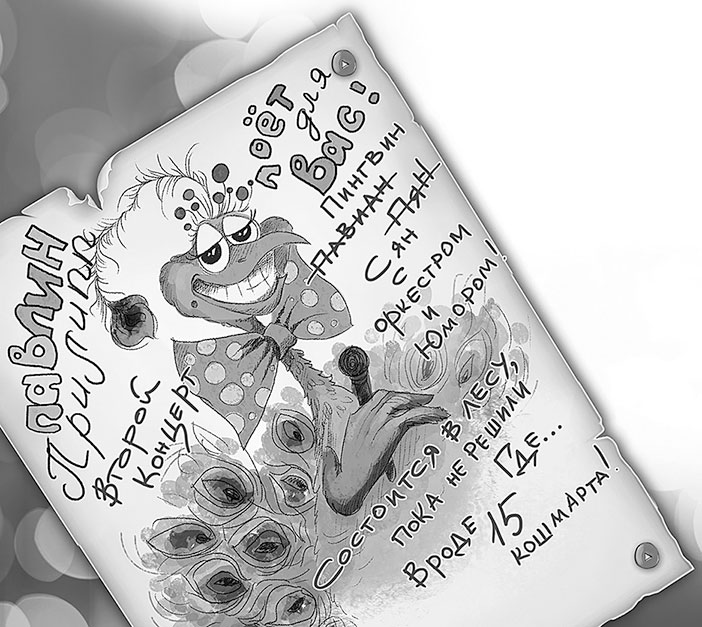 ПАВЛИН
Прилипп
Второй
концерт
поёт
для
Вас!
Пингвин
ПАВИАН ПЯН
Сян
с
оркестром
и
Юмором!
Состоится в лесу,
пока не решили
где...
Вроде 15
кошмарта!